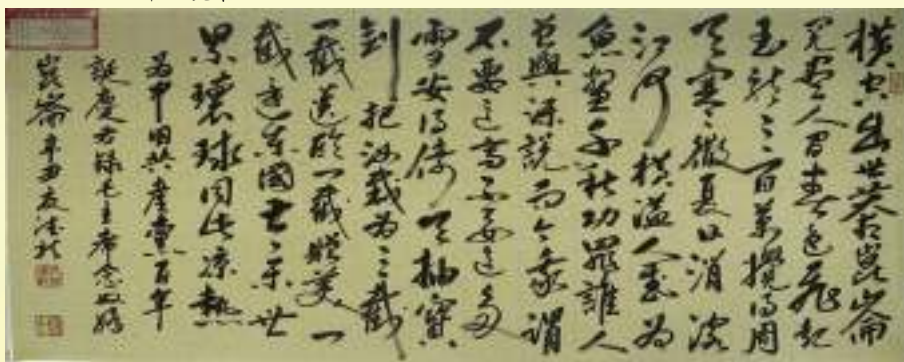 横空出世莽崑崙
阅尽人间春色飞起
玉龙三百万搅得周
天寒彻夏日消溶
江河横溢人或为
鱼鳖千秋功罪谁人
曾與评説而今我謂
不要这高不要这多
雪安得倚天抽寶
剑把汝裁为三截
一截遗欧一截赠美一
截还东國太平世
界環球同此凉熱
为中国共產党百年
誕慶书録毛主席念奴娇
崑崙辛丑友德